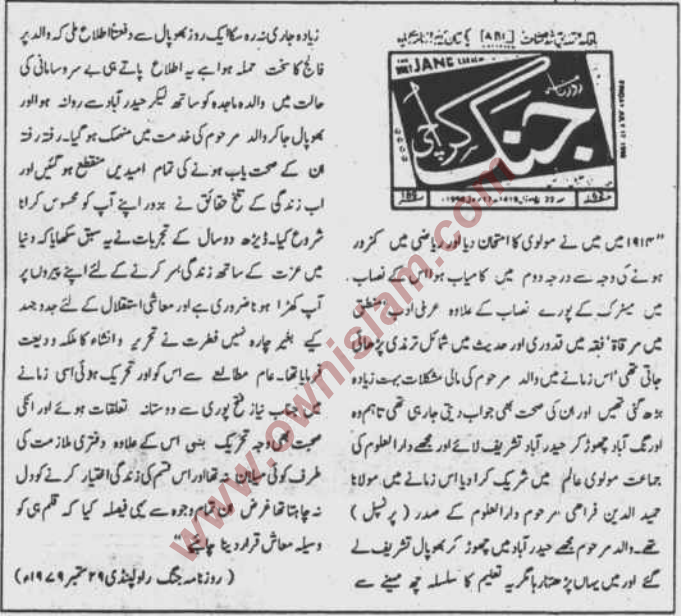 باقاعدہ تصدیق شدہ اشاعت [ABC]
THE DAILY JANG
FRIDAY JULY 17 1998
روزنامہ
جنگ
کراچی
جمعہ 22 ربیع الاول 1419ھ 17 جولائی 1998ء
"۱۹۱۳ میں میں نے مولوی کا امتحان دیا اور ریاضی میں کمزور
ہونے کی وجہ سے درجہ دوم میں کامیاب ہوا اس کے نصاب
میں میٹرک کے پورے نصاب کے علاوہ عربی ادب، منطق
میں مرقاۃ، فقہ میں قدوری اور حدیث میں شمائل ترمذی پڑھائی
جاتی تھی، اس زمانے میں والد مرحوم کی مالی مشکلات بہت زیادہ
بڑھ گئی تھیں اور ان کی صحت بھی جواب دیتی جارہی تھی تاہم وہ
اورنگ آباد چھوڑ کر حیدر آباد تشریف لائے اور مجھے دارالعلوم کی
جماعت مولوی عالم میں شریک کرا دیا اس زمانے میں مولانا
حمید الدین فراھی مرحوم دارالعلوم کے صدر (پرنسپل)
تھے۔ والد مرحوم مجھے حیدر آباد میں چھوڑ کر بھوپال تشریف لے
گئے اور میں یہاں پڑھتا رہا مگر یہ تعلیم کا سلسلہ چھ مہینے سے
زیادہ جاری نہ رہ سکا ایک روز بھوپال سے دفعتاً اطلاع ملی کہ والد پر
فالج کا سخت حملہ ہوا ہے یہ اطلاع پاتے ہی بے سروسامانی کی
حالت میں والدہ ماجدہ کو ساتھ لیکر حیدر آباد سے روانہ ہوا اور
بھوپال جا کر والد مرحوم کی خدمت میں منہمک ہو گیا۔ رفتہ رفتہ
ان کے صحت یاب ہونے کی تمام امیدیں منقطع ہو گئیں اور
اب زندگی کے تلخ حقائق نے بزور اپنے آپ کو محسوس کرانا
شروع کیا۔ ڈیڑھ دو سال کے تجربات نے یہ سبق سکھایا کہ دنیا
میں عزت کے ساتھ زندگی بسر کرنے کے لئے اپنے پیروں پر
آپ کھڑا ہونا ضروری ہے اور معاشی استقلال کے لئے جدوجہد
کیے بغیر چارہ نہیں فطرت نے تحریر و انشاء کا ملکہ ودیعت
فرمایا تھا۔ عام مطالعے سے اس کو اور تحریک ہوئی اسی زمانے
میں جناب نیاز فتح پوری سے دوستانہ تعلقات ہوئے اور انکی
صحبت بھی وجہ تحریک بنی اس کے علاوہ دفتری ملازمت کی
طرف کوئی میلان نہ تھا اور اس قسم کی زندگی اختیار کرنے کو دل
نہ چاہتا تھا غرض ان تمام وجوہ سے یہی فیصلہ کیا کہ قلم ہی کو
وسیلہ معاش قرار دینا چاہئے"
(روزنامہ جنگ راولپنڈی ۲۹ ستمبر ۱۹۷۹ء)
www.ownislam.com